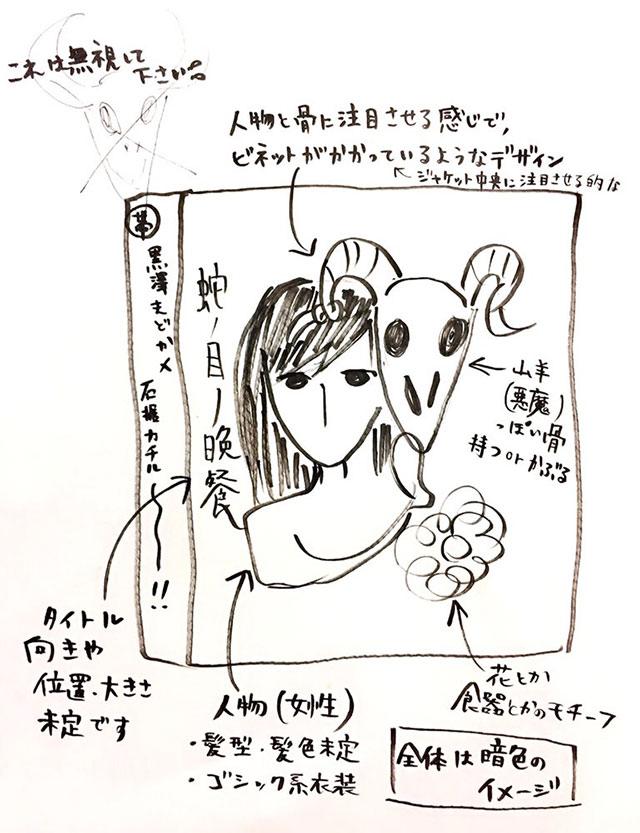 これは無視して
下さい。
人物と骨に注目させる感じで、
ビネットがかかっているようなデザイン
ジャケット中央に注目させる的な
帯
黒澤まどか×
石据カチル
!!
蛇ノ目ノ晩餐
山羊
(悪魔)
っぽい骨
持つorかぶる
タイトル
向きや
位置、大きさ
未定です
人物(女性)
・髪型・髪色未定
・ゴシック系衣装
花とか
食器とかのモチーフ
全体は暗色の
イメージ